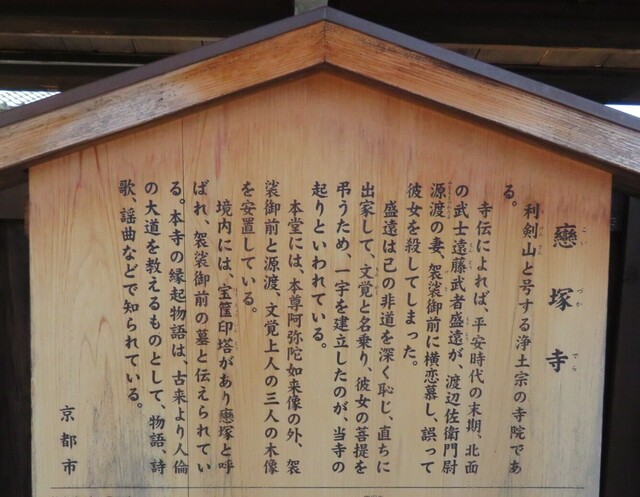 戀塚寺
利剣山と号する浄土宗の寺院であ
る。
寺伝によれば、平安時代の末期、北面
の武士遠藤武者盛遠が、渡辺佐衛門尉
源渡の妻、袈裟御前に横恋慕し、誤って
彼女を殺してしまった。
盛遠は己の非道を深く恥じ、直ちに
出家して、文覚と名乗り、彼女の菩提を
弔うため、一宇を建立したのが、当寺の
起りといわれている。
本堂には、本尊阿弥陀如来像の外、袈
裟御前と源渡、文覚上人の三人の木像
を安置している。
境内には、宝篋印塔があり戀塚と呼
ばれ、袈裟御前の墓と伝えられてい
る。本寺の縁起物語は、古来より人倫
の大道を教えるものとして、物語、詩
歌、謡曲などで知られている。
京都市